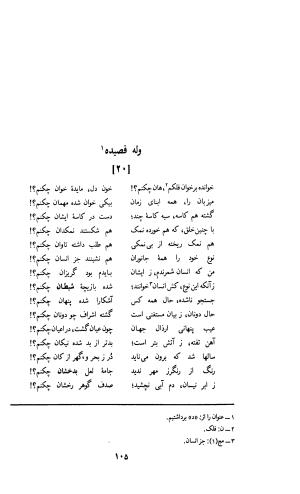 وله قصیده ۱
[۲۰]
خوانده برخوان فلکم۲، هان چکنم؟! خون دل، مایدهٔ خوان چکنم؟!
میزبان را، همه ابنای زمان بیکی خوان شده مهمان چکنم؟!
گشته هم کاسه، سیه کاسهٔ چند؛ دست در کاسهٔ ایشان چکنم؟!
با چنین خلق، که هم خورده نمک هم شکستند نمکدان چکنم؟!
هم نمک ریخته از بی‌نمکی هم طلب داشته تاوان چکنم؟!
نوع خود را همهٔ جانوران هم نشینند جز انسان چکنم؟!
من که انسان شمرندم، ز ایشان بایدم بود گریزان چکنم؟!
زآنکه این نوع، کش انسان۳ خوانند؛ شده بازیچهٔ شیطان چکنم؟!
جستجو ناشده، حال همه کس آشکارا شده پنهان چکنم؟!
حال دونان، ز بیان مستغنی است گشته اشراف چو دونان چکنم؟!
عیب پنهانی ارذال جهان چون عیان گشت، در اعیان چکنم؟!
آهن تفته، ز آتش بتر است؛ بدتر از بد شده نیکان چکنم؟!
سالها شد که برون می‌ناید در ز بحر و گهر از کان چکنم؟!
رنگ از رنگرز مهر ندید جامهٔ لعل بدخشان چکنم؟!
ز ابر نیسان، دم آبی نچشید؛ صدف گوهر رخشان چکنم؟!
۱ – عنوان را از: «د» برداشتیم.
۲ – ن: فلک.
۳ – مج(۱): جز انسان.
۱۰۵